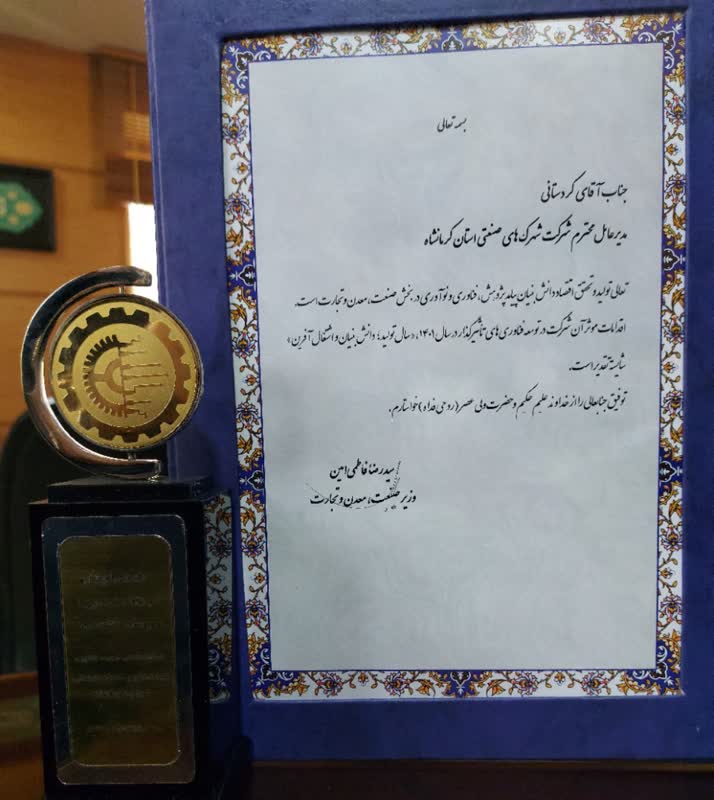 بسمه تعالی
جناب آقای کردستانی
مدیرعامل محترم شرکت شهرک های صنعتی استان کرمانشاه
تعالی تولید و تحقق اقتصاد دانش بنیان پیامد پژوهش، فناوری و نوآوری در بخش صنعت، معدن و تجارت است.
اقدامات موثر آن شرکت در توسعه فناوری های تأثیرگذار در سال ۱۴۰۱، «سال تولید؛ دانش بنیان و اشتغال آفرین»
شایسته تقدیر است.
توفیق جنابعالی را از خداوند علیم حکیم و حضرت ولی عصر (روحی فداه) خواستارم.
سیدرضا فاطمی امین
وزیر صنعت، معدن و تجارت